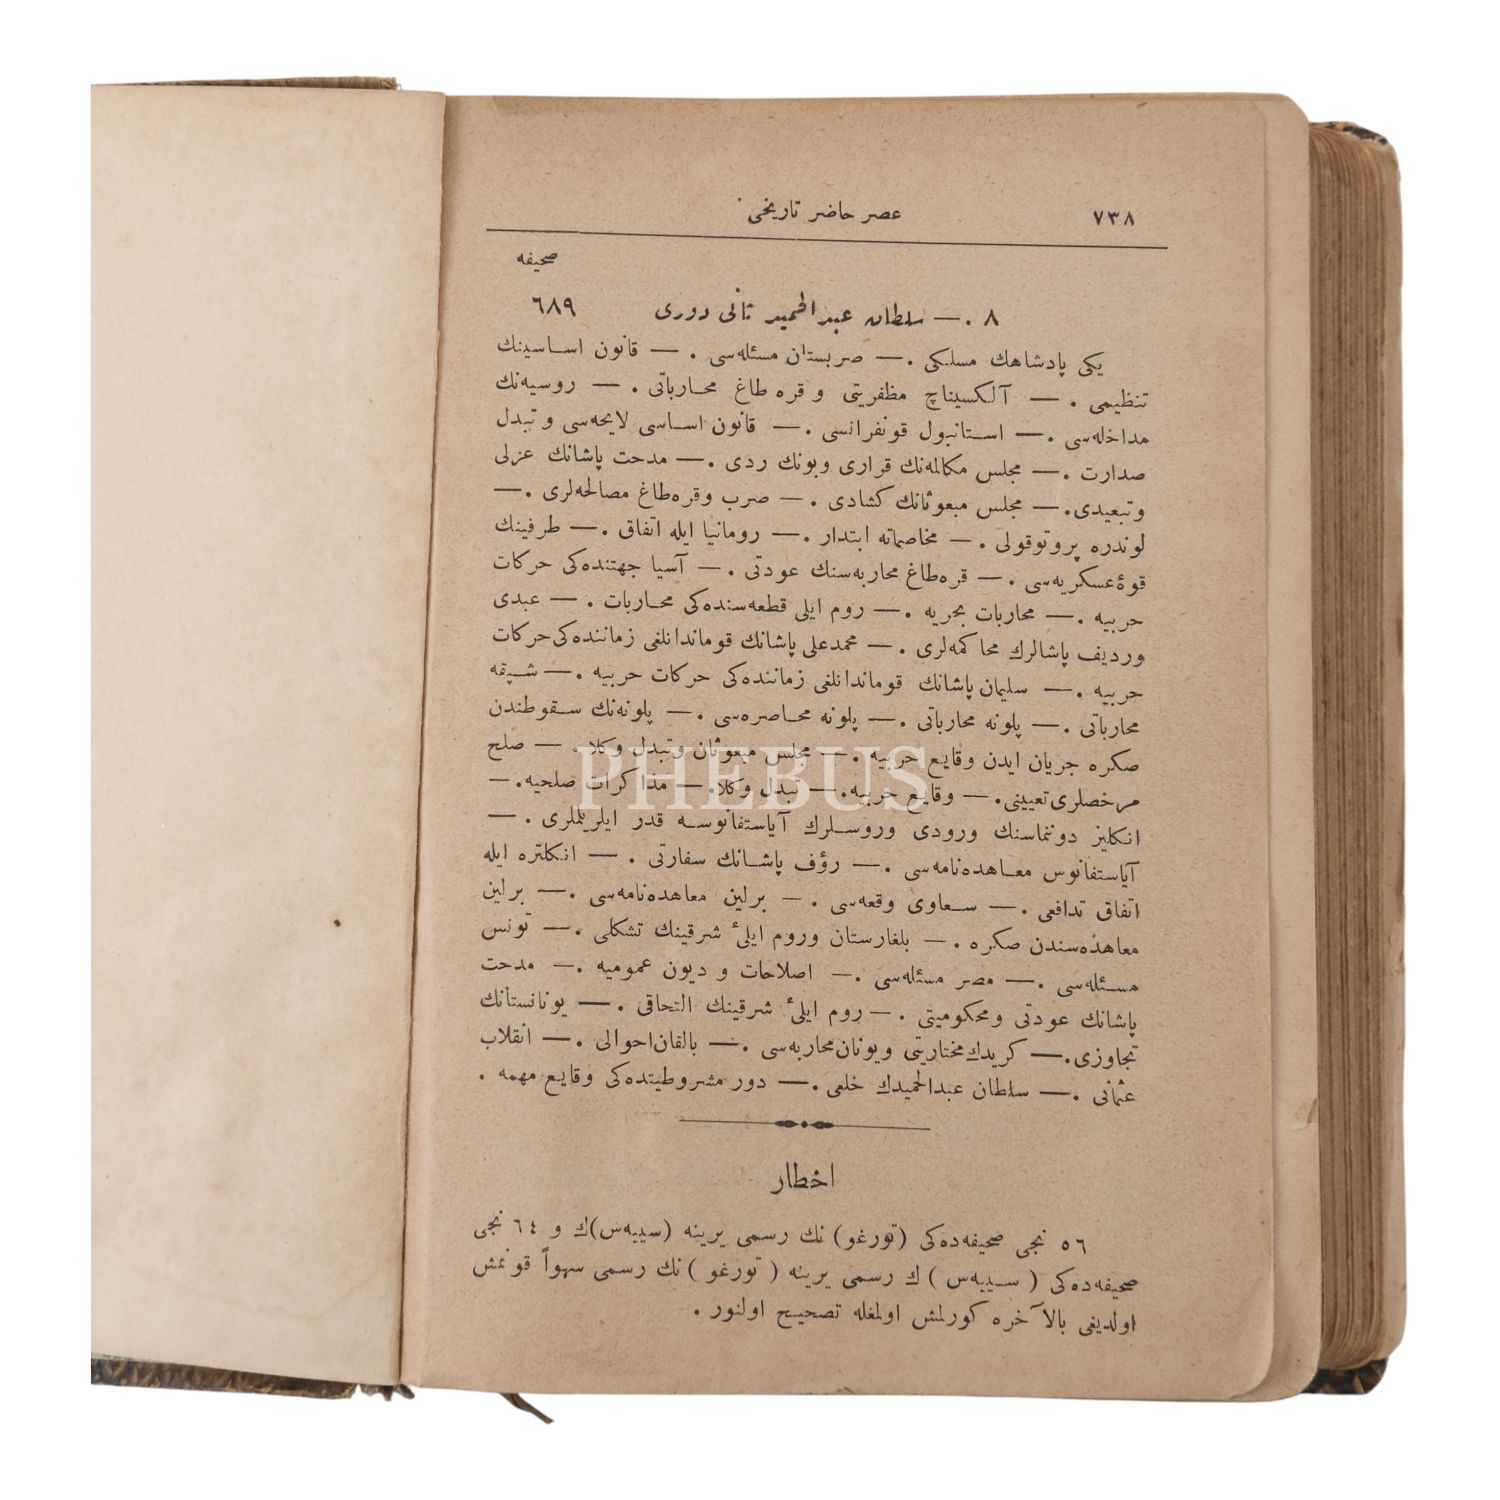 ٧٣٨ عصر حاضر تاريخى
صحيفه
٨ . — سلطان عبدالحميد ثانى دورى ٦٨٩
يكى پادشاهك مسلكى . — صربستان مسئله‌سى . — قانون اساسينك
تنظيمى . — آلكسيناچ مظفريتى و قره طاغ محارباتى . — روسيه‌نك
مداخله‌سى . — استانبول قونفرانسى . — قانون اساسى لايحه‌سى و تبدل
صدارت . — مجلس مكالمه‌نك قرارى وبونك ردى . — مدحت پاشانك عزلى
وتبعيدى . — مجلس مبعوثانك كشادى . — صرب وقره‌طاغ مصالحه‌لرى . —
لوندره پروتوقولى . — مخاصماته ابتدار . — رومانيا ايله اتفاق . — طرفينك
قوۀ عسكريه‌سى . — قره‌طاغ محاربه‌سنك عودتى . — آسيا جهتنده‌كى حركات
حربيه . — محاربات بحريه . — روم ايلى قطعه‌سنده‌كى محاربات . — عبدى
ورديف پاشالرك محاكمه‌لرى . — محمدعلى پاشانك قوماندانلغى زماننده‌كى حركات
حربيه . — سليمان پاشانك قوماندانلغى زماننده‌كى حركات حربيه . — شيپقه
محارباتى . — پلونه محارباتى . — پلونه محاصره‌سى . — پلونه‌نك سقوطندن
صكره جريان ايدن وقايع حربيه . — مجلس مبعوثان وتبدل وكلا . — صلح
مرخصلرى تعيينى . — وقايع حربيه . — تبدل وكلا . — مذاكرات صلحيه . —
انكليز دونماسنك ورودى وروسلرك آياستفانوسه قدر ايلريلملرى . —
آياستفانوس معاهده‌نامه‌سى . — رؤف پاشانك سفارتى . — انكلتره ايله
اتفاق تدافعى . — سعاوى وقعه‌سى . — برلين معاهده‌نامه‌سى . — برلين
معاهده‌سندن صكره . — بلغارستان وروم ايلىٔ شرقينك تشكلى . — تونس
مسئله‌سى . — مصر مسئله‌سى . — اصلاحات و ديون عموميه . — مدحت
پاشانك عودتى ومحكوميتى . — روم ايلىٔ شرقينك التحاقى . — يونانستانك
تجاوزى . — كريدك مختاريتى ويونان محاربه‌سى . — بالقان احوالى . — انقلاب
عثمانى . — سلطان عبدالحميدك خلعى . — دور مشروطيتده‌كى وقايع مهمه .
اخطار
٥٦ نجى صحيفه‌ده‌كى (تورغو) نك رسمى يرينه (سييه‌س)ك و ٦٤ نجى
صحيفه‌ده‌كى (سييه‌س) ك رسمى يرينه (تورغو) نك رسمى سهواً قونمش
اولديغى بالآخره كورلمش اولمغله تصحيح اولنور .
PHEBUS